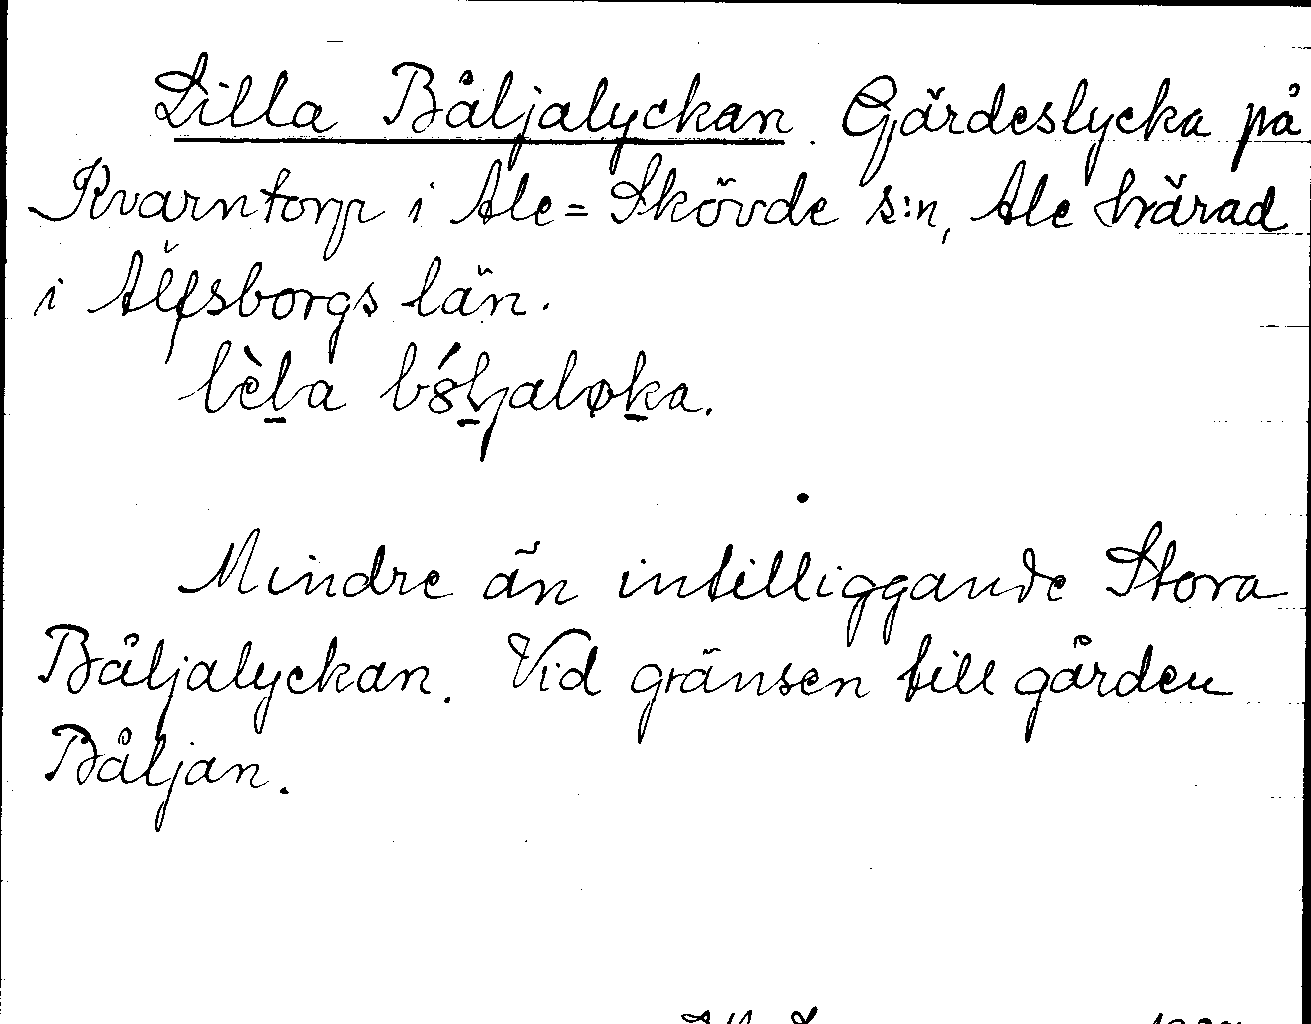 Lilla Båljalyckan. Gärdeslycka på
Kvarntorp i Ale=Skövde s:n, Ale härad
i Älfsborgs län.
lèla
Mindre än intilliggande Stora
Båljalyckan. Vid gränsen till gården
Båljan.